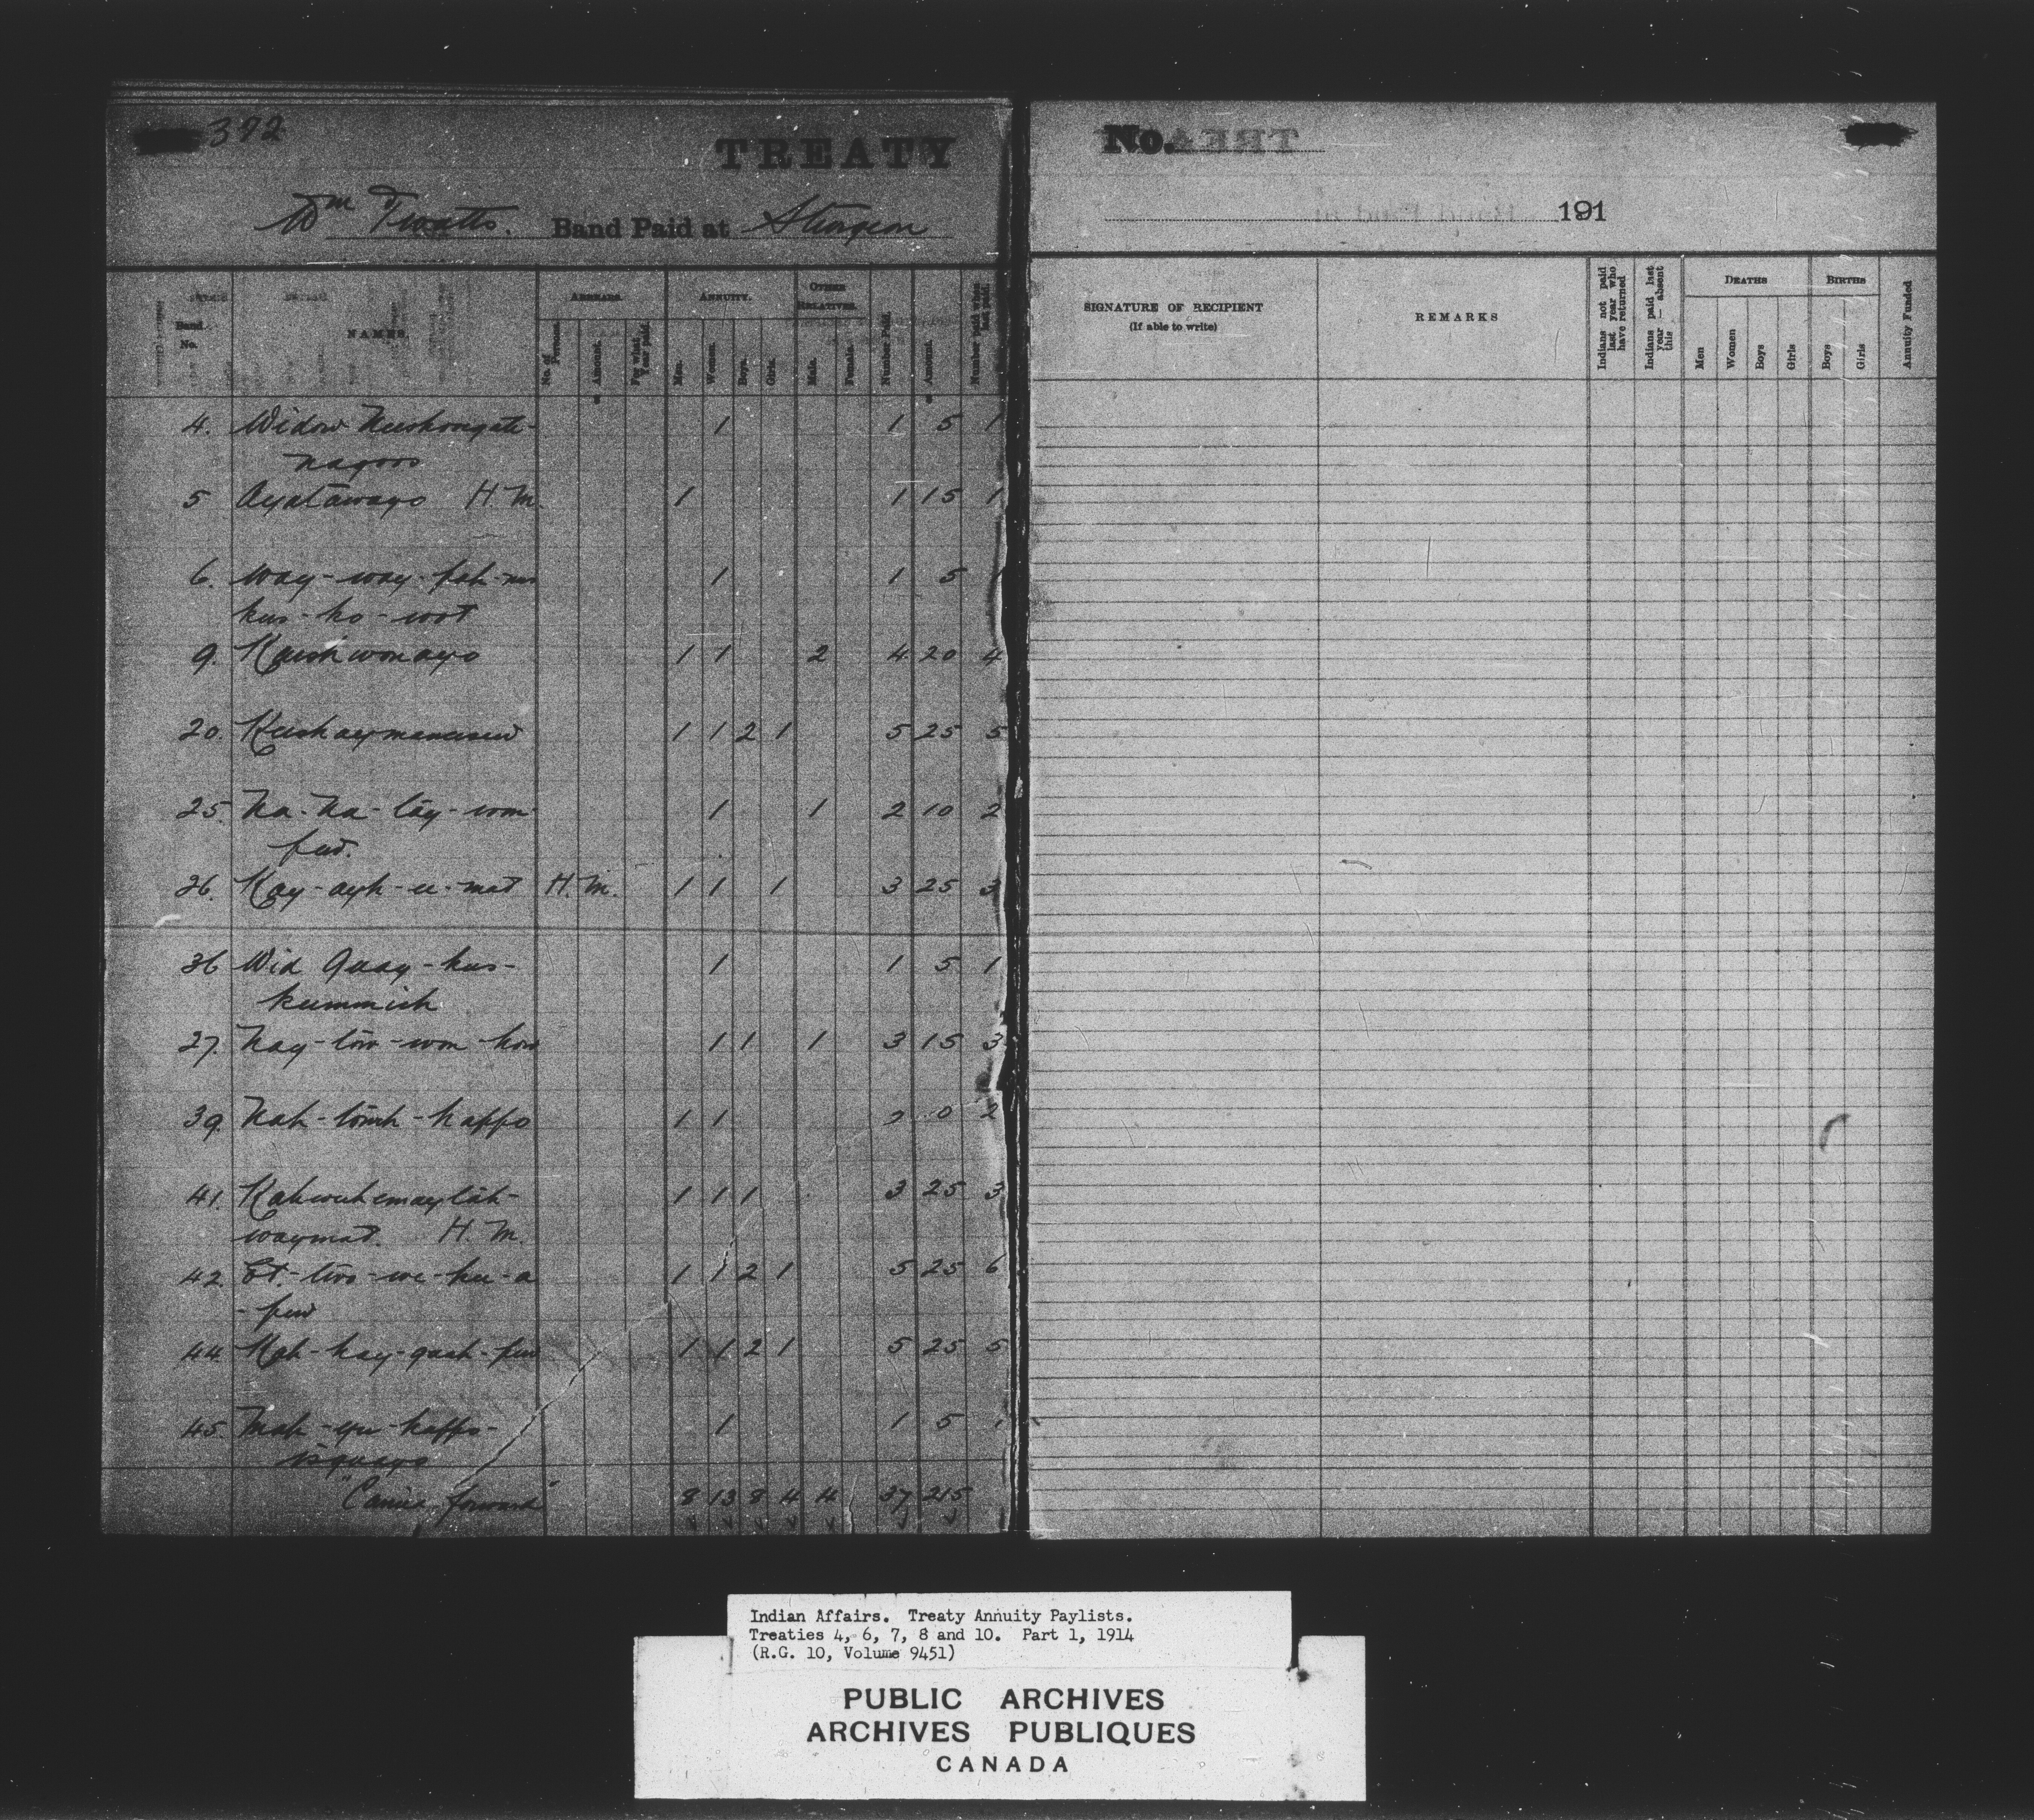 372
TREATY
Wm Twatts. Band Paid at Sturgeon
Band No.
NAMES.
ARREARS.
No. of Persons.
Amount.
For what Year paid.
ANNUITY.
Men.
Women.
Boys.
Girls.
OTHER RELATIVES.
Male.
Female.
Number Paid.
Amount.
4. Widow 1 1 5 1
5 Ayatawayo H. M. 1 1 15 1
6. Way-way- 1 1 5
9. Kaishwonayo 1 1 2 4 20 4
20. 1 1 2 1 5 25 5
25. Na-Na-tay-wom- 1 1 2 10 2
26. Kay-ayh-ee-mat H. M. 1 1 1 3 25 3
36 Wid Quay-kus- 1 1 5 1
kummich
27. Nay-tow-won-how 1 1 1 3 15 3
39. Nah-tomh-kappo 1 1 2 0 2
41. 1 1 1 3 25 3
waymat. H. M.
42. 1 1 2 1 5 25 6
44. Kah-kay-quah-pew 1 1 2 1 5 25 5
45. Mah-yu-kappo- 1 1 5
isquayo
"Carried forward" 8 13 8 4 4 37 215
No.
191
SIGNATURE OF RECIPIENT
(If able to write)
REMARKS
Indians not paid last year who have returned
Indians paid last year — absent this
DEATHS
Men
Women
Boys
Girls
BIRTHS
Boys
Girls
Annuity Funded
Indian Affairs. Treaty Annuity Paylists.
Treaties 4, 6, 7, 8 and 10. Part 1, 1914
(R.G. 10, Volume 9451)
PUBLIC ARCHIVES
ARCHIVES PUBLIQUES
CANADA